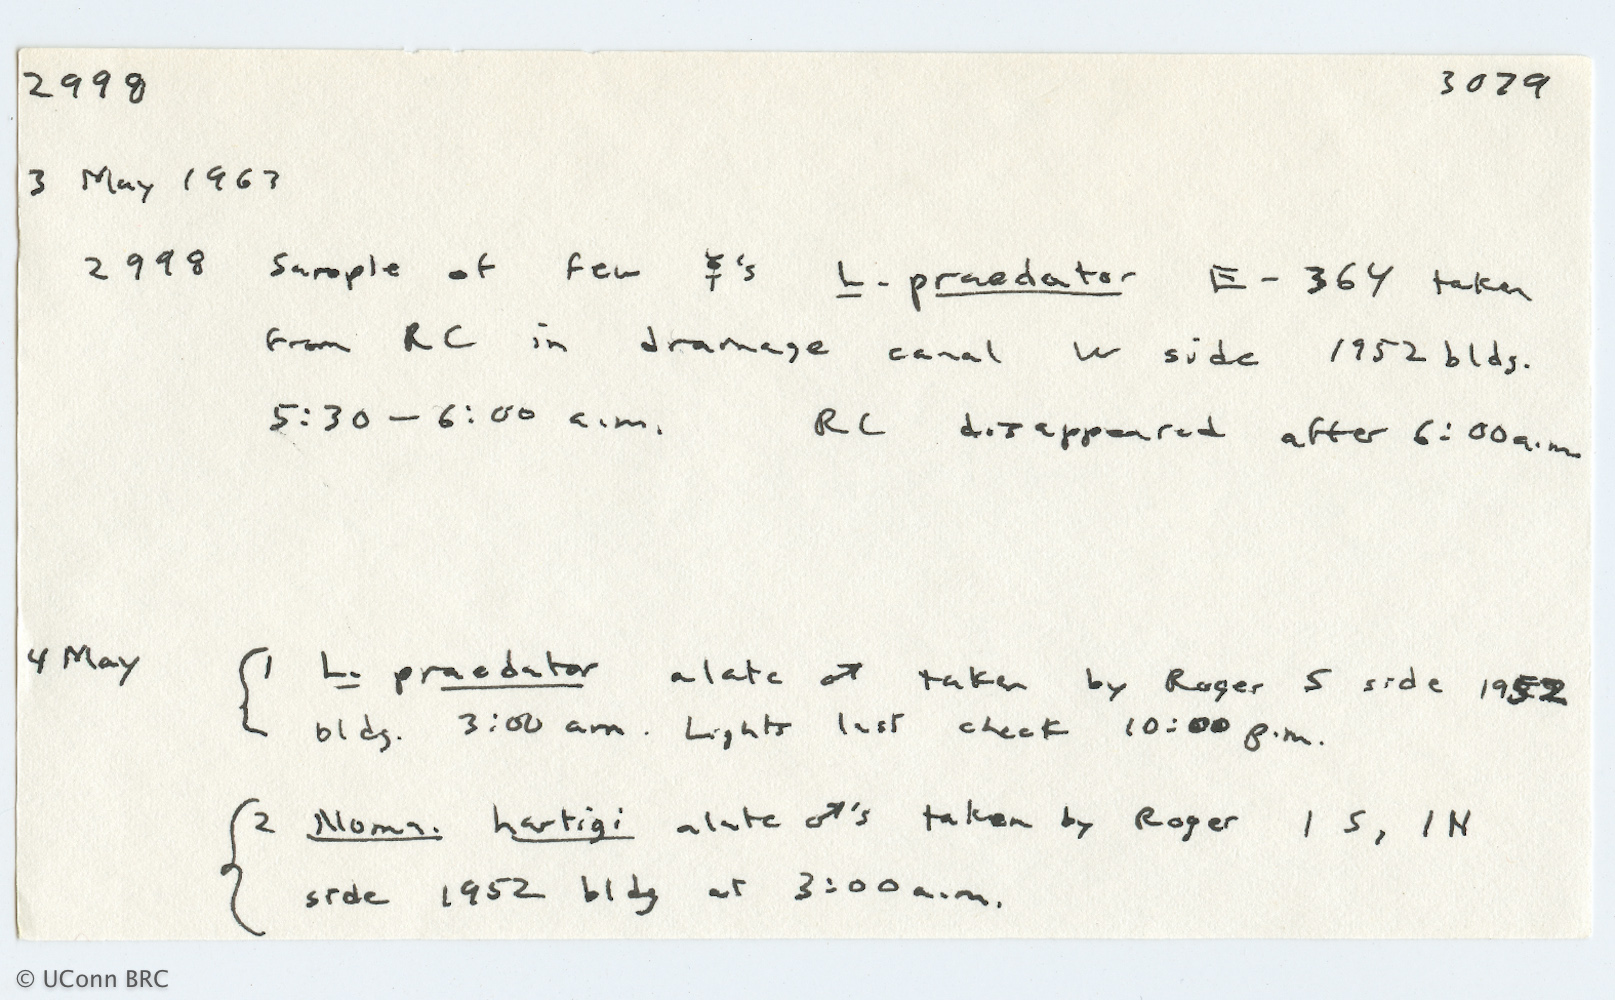 2998 3079
3 May 1963
2998 Sample of few ☿'s L. praedator E-364 taken
from RC in drainage canal W side 1952 bldg.
5:30 - 6:00 a.m. RC disappeared after 6:00 a.m.
4 May 1 L. praedator alate ♂ taken by Roger S side 1952
bldg. 3:00 am. Lights last check 10:00 p.m.
2 Noma. hartigi alate ♂'s taken by Roger 1 S, 1 N
side 1952 bldg at 3:00 a.m.
© UConn BRC